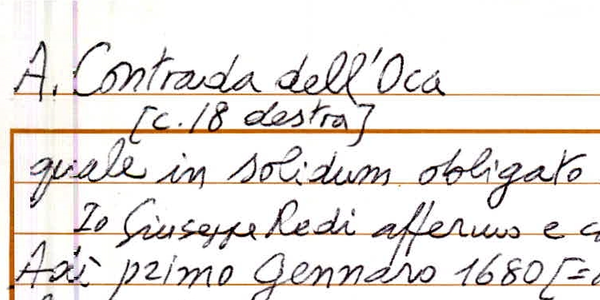 A. Contrada dell'Oca
[c. 18 destra]
quale in solidum obbligato
Io Giuseppe Redi affermo e
Adì primo Gennaro 1680 [=